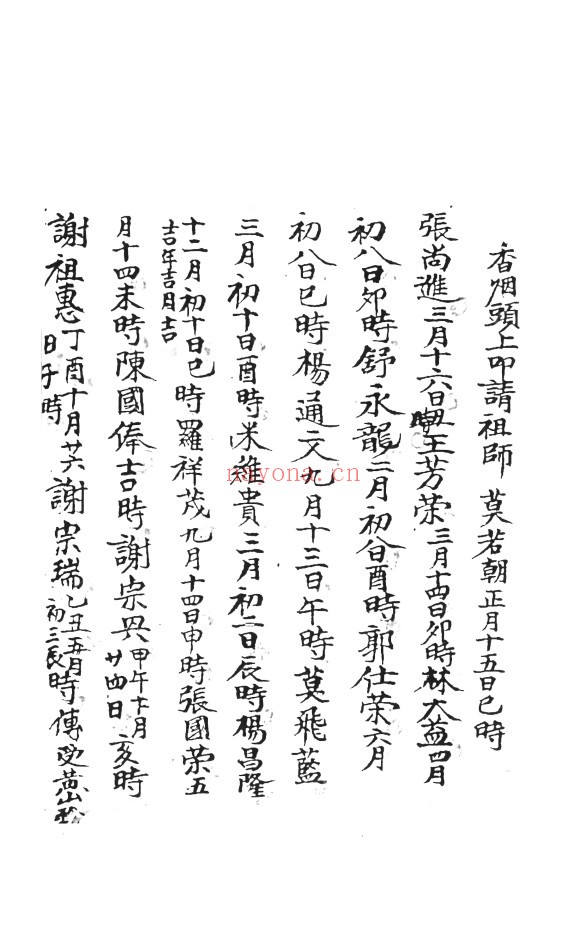 香烟頭上叩請祖師 莫若朝正月十五日巳時
張尚進三月十六日丑時王芳荣三月十四日夘時林大益四月
初八日夘時舒永龍二月初八日酉時郭仕荣六月
初八日巳時楊通文九月十三日午時莫飛藍
三月初十日酉時米維貴三月初二日辰時楊昌隆
吉年吉月吉
十二月初十日巳時羅祥茂九月十四日申時張國荣五
月十四未時陳國俸吉時謝宗興甲午十二月廿四日亥時
謝祖惠丁酉十月廿六日子時謝宗瑞乙丑五月初三辰時傳
nayona.cn